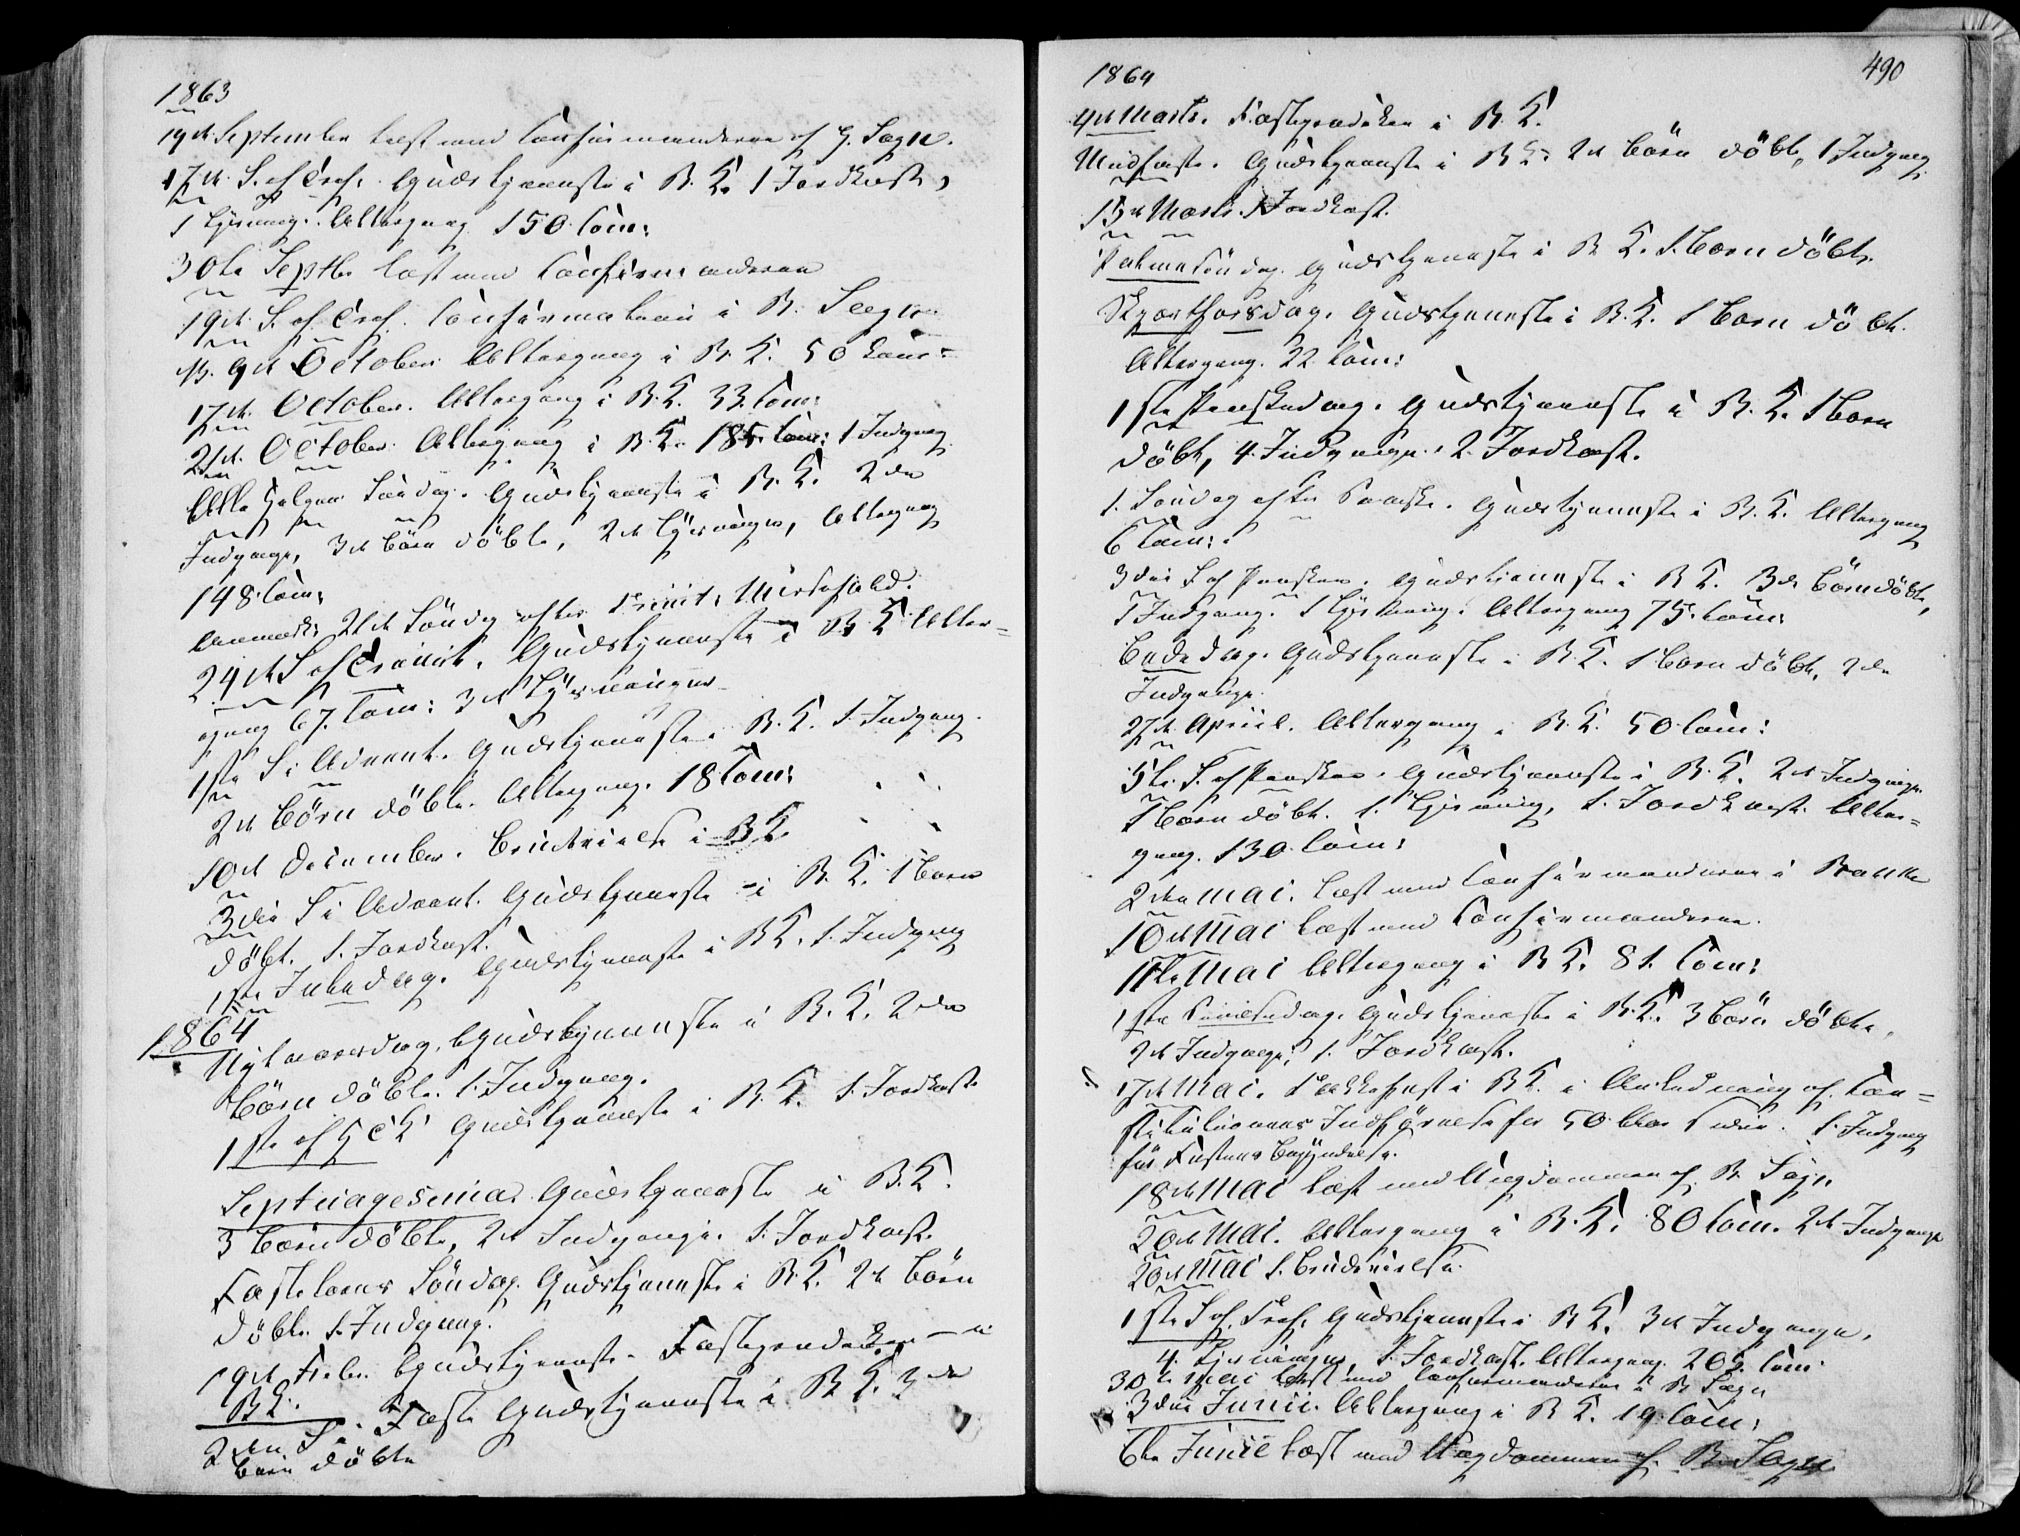 1863
19de September læst med Confirmanderne af H. Sogn.
17de S. ef Tref. Gudstjeneste i B. K. 1 Jordkast,
1 Lysning. Altergang 150 Com:
30te Septbr læst med Confirmanderne
19de S. ef Tref. Confirmation i B. Sogn
9de October Altergang i B. K. 50 Com:
17de October. Altergang i B. K. 33 Com:
21de October Altergang i B. K. 185 Com: 1 Indgang
Alle Helgens Søndag. Gudstjeneste i B. K. 2de
Indgange, 3de Børn døbte, 2de Lysninger, Altergang
148 Com:
Anmærk: 21de Söndag efter Trinit:
24de S. ef Trinit. Gudstjeneste i B. K. Alter=
gang 67 Com: 3de Lysninger
1ste S. i Advent. Gudstjeneste i B. K. 1. Indgang.
2de Börn döbte. Altergang. 18 Com:
10de December. Brudevielse i B K
3die S i Advent. Gudstjeneste i B. K. 1 Barn
döbt. 1. Jordkast.
1ste Juledag. Gudstjeneste i B K. 1. Indgang
1864
Nytaarsdag. Gudstjeneste i B. K. 2de
Börn döbte. 1. Indgang.
1ste ef H 3 K Gudstjeneste i B. K. 1. Jordkast
Septuagesima Gudstjeneste i B. K.
3 Børn döbte, 2de Indgange. 1. Jordkast.
Fastelavns Söndag. Gudstjeneste i B. K. 2de Börn
döbte 1. Indgang.
19de Febr. Gudstjeneste. Fasteprædiken i
B K.
2den S. i Faste Gudstjeneste i B K. 3de
Børn döbte
1864 490
4de Marts. Fasteprædiken i B. K.
Midfaste. Gudstjeneste i B K. 2de Börn döbte, 1 Indgang
15de Marts. 1 Jordkast.
Palmesöndag. Gudstjeneste i B K. 1. Barn döbt.
Skjærthorsdag. Gudstjeneste i B. K. 1 Barn döbt.
Altergang. 22 Com:
1ste Paaskedag. Gudstjeneste i B. K. 1 Barn
döbt, 4. Indgange. 2. Jordkast.
1. Söndag efter Paaske. Gudstjeneste i B. K. Altergang
6 Com:
3die S ef Paasken. Gudstjeneste i B K. 3de Börn döbte,
1 Indgang. 1 Lysning. Altergang 75. Com:
Bededag. Gudstjeneste i B K. 1 Barn döbt, 2de
Indgange.
27de April. Altergang i B. K. 50 Com:
5te S. ef Paasken. Gudstjeneste i B. K. 2de Indgange
1 Barn döbt. 1. Lysning, 1. Jordkast. Alter=
gang. 130 Com:
2den Mai. læst med Confirmanderne i
10de Mai læst med Confirmanderne.
11te Mai Altergang i B K. 81. Com:
1ste Pintsedag. Gudstjeneste i B. K. 3 Børn döbte,
2de Indgange, 1. Jordkast.
17de Mai. Takkefest i B K. i Anledning af Con=
stitutionens Indförelse for 50 Aar siden. 1. Indgang
før Festens Begyndelse.
18de Mai læst med Ungdommen af B. Sogn
20de Mai. Altergang i B. K. 80 Com. 2de Indgange
20de Mai 1. Brudevielse.
1ste S. ef. Tref. Gudstjeneste i B K. 3de Indgange,
4. Lysninger, 1. Jordkast. Altergang. 205. Com.
30te Mai læst med Confirmanderne i B Sogn
3die Junii. Altergang i B K. 19 Com:
6te Junii læst med Ungdommen af B. Sogn.